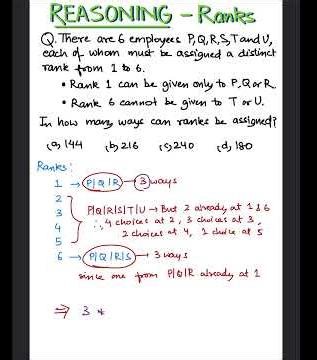 REASONING - Ranks
Q. There are 6 employees P,Q,R,S,T and U,
each of whom must be assigned a distinct
rank from 1 to 6.
• Rank 1 can be given only to P,Q or R.
• Rank 6 cannot be given to T or U.
In how many ways can ranks be assigned?
(a) 144 (b) 216 (c) 240 (d) 180
Ranks:
1 → P|Q|R → 3 ways
2
3 P|Q|R|S|T|U → But 2 already at 1&6
4 ∴ 4 choices at 2, 3 choices at 3,
5 2 choices at 4, 1 choice at 5
6 → P|Q|R|S → 3 ways
since one from P|Q|R already at 1
⇒ 3 *